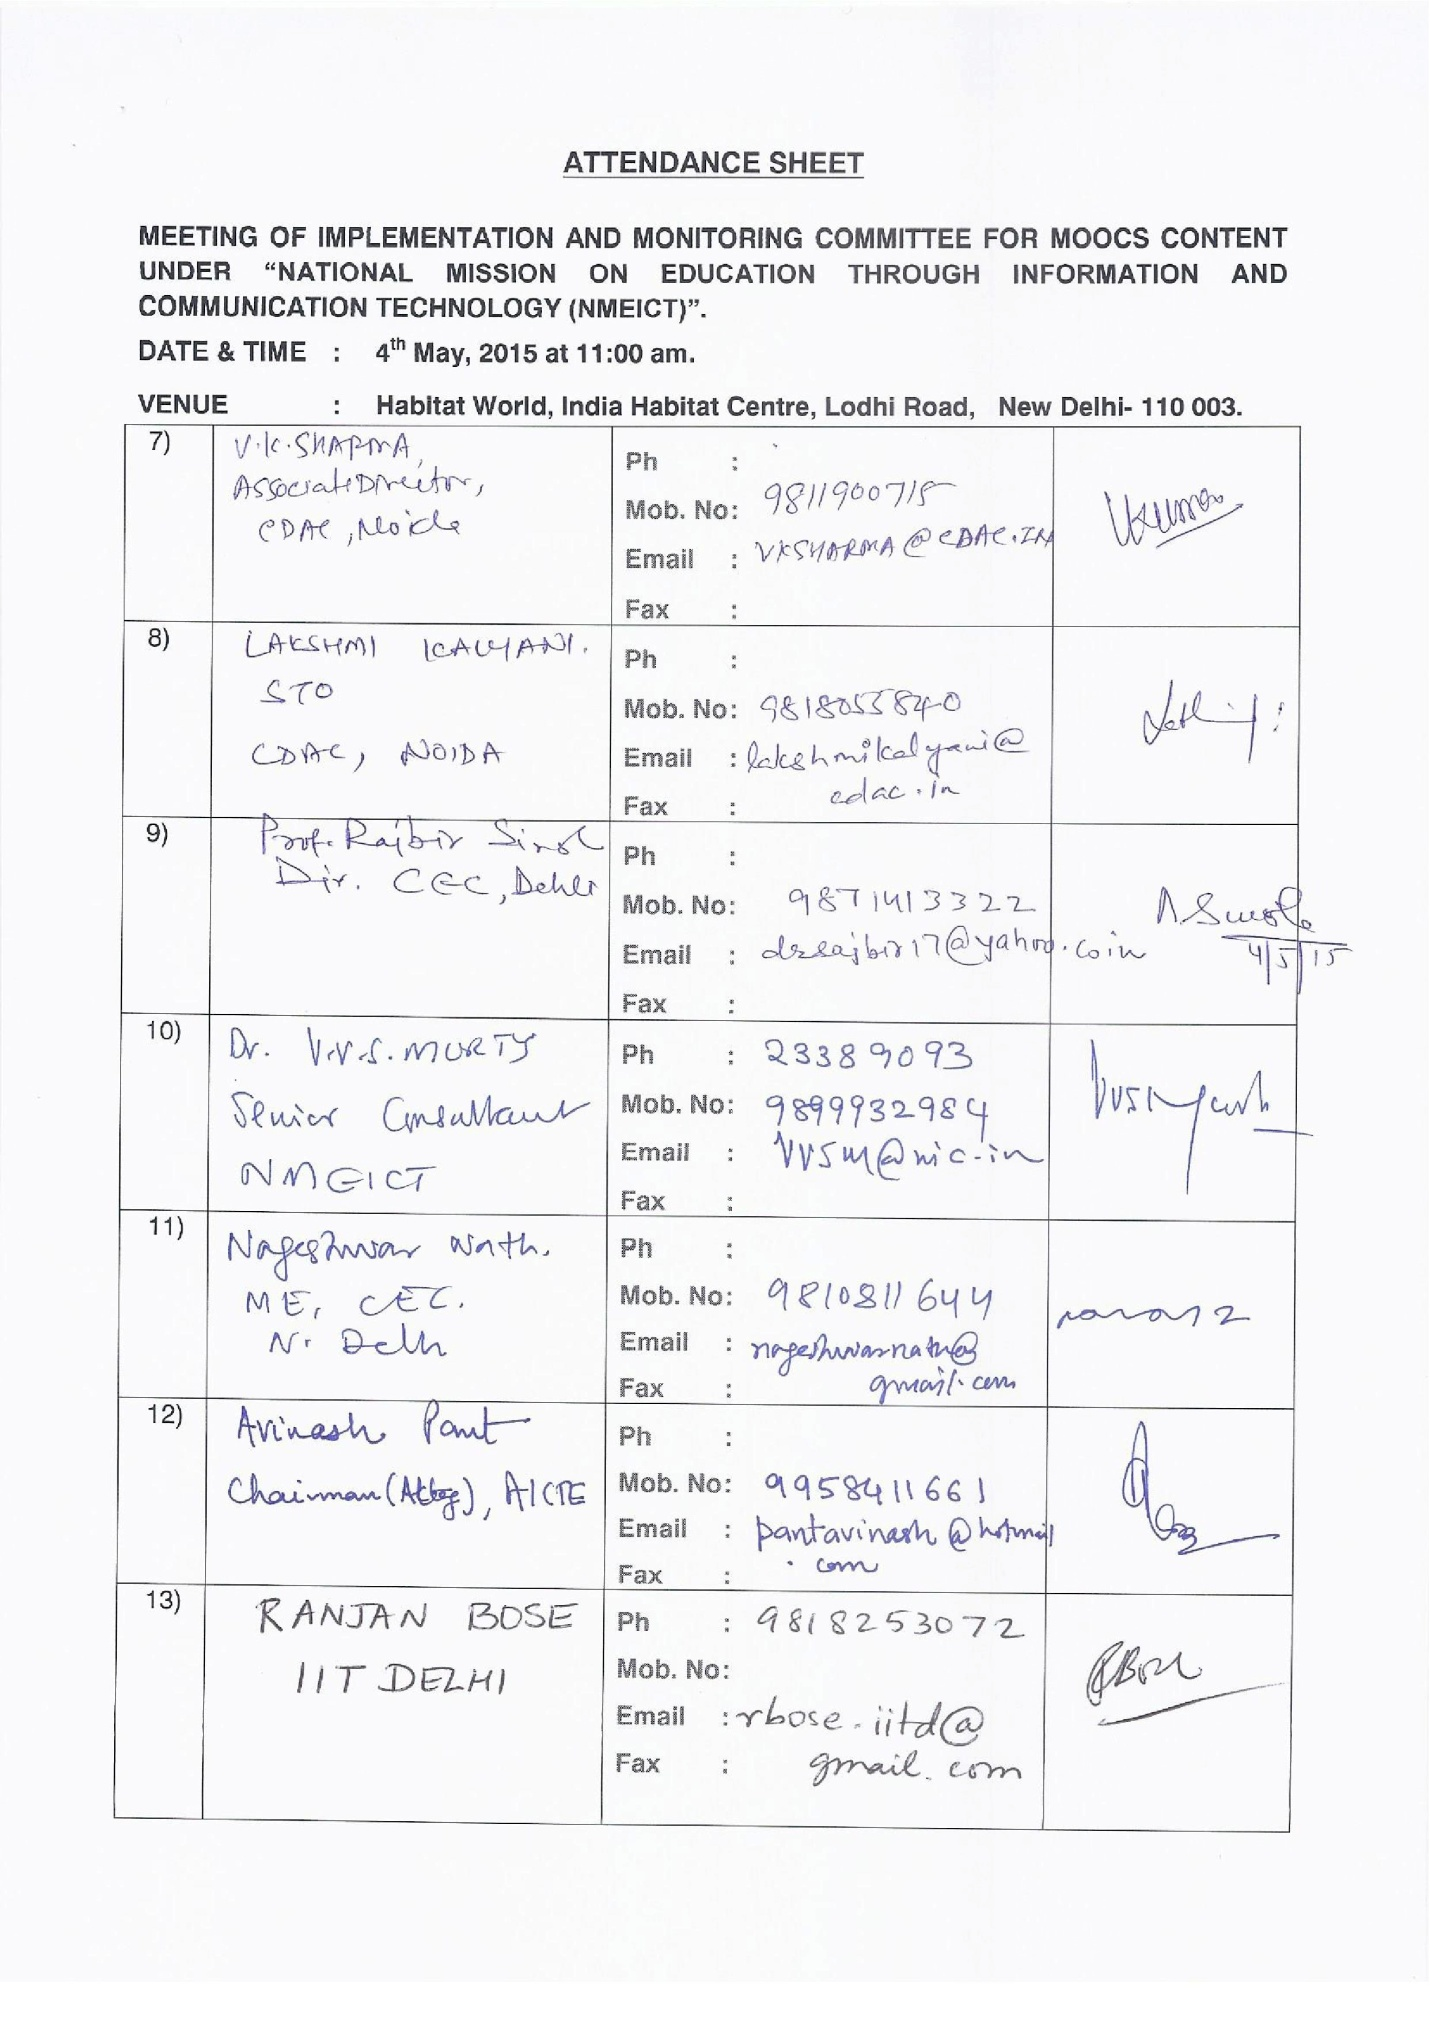 ATTENDANCE SHEET
MEETING OF IMPLEMENTATION AND MONITORING COMMITTEE FOR MOOCS CONTENT
UNDER “NATIONAL MISSION ON EDUCATION THROUGH INFORMATION AND
COMMUNICATION TECHNOLOGY (NMEICT)”.
DATE & TIME : 4th May, 2015 at 11:00 am.
VENUE : Habitat World, India Habitat Centre, Lodhi Road, New Delhi- 110 003.
7) V.K.SHARMA,
Associate Director,
CDAC, Noida
Ph :
Mob. No: 9811900715
Email : VKSHARMA@CDAC.IN
Fax :
8) LAKSHMI KALYANI.
STO
CDAC, NOIDA
Ph :
Mob. No: 9818055840
Email : lakshmikalyani@
cdac.in
Fax :
9) Prof. Rajbir Singh
Dir. CEC, Delhi
Ph :
Mob. No: 9871413322
Email : drrajbir17@yahoo.co.in
Fax :
4/5/15
10) Dr. V.V.S. MURTY
Senior Consultant
NMEICT
Ph : 23389093
Mob. No: 9899932984
Email : vvsm@nic.in
Fax :
11) Nageshwar Nath.
ME, CEC.
N. Delh
Ph :
Mob. No: 9810811644
Email : nageshwarnath@
gmail.com
Fax :
12) Avinash Pant
Chairman , AICTE
Ph :
Mob. No: 9958411661
Email : pantavinash@hotmail
.com
Fax :
13) RANJAN BOSE
IIT DELHI
Ph : 9818253072
Mob. No:
Email : rbose.iitd@
gmail.com
Fax :